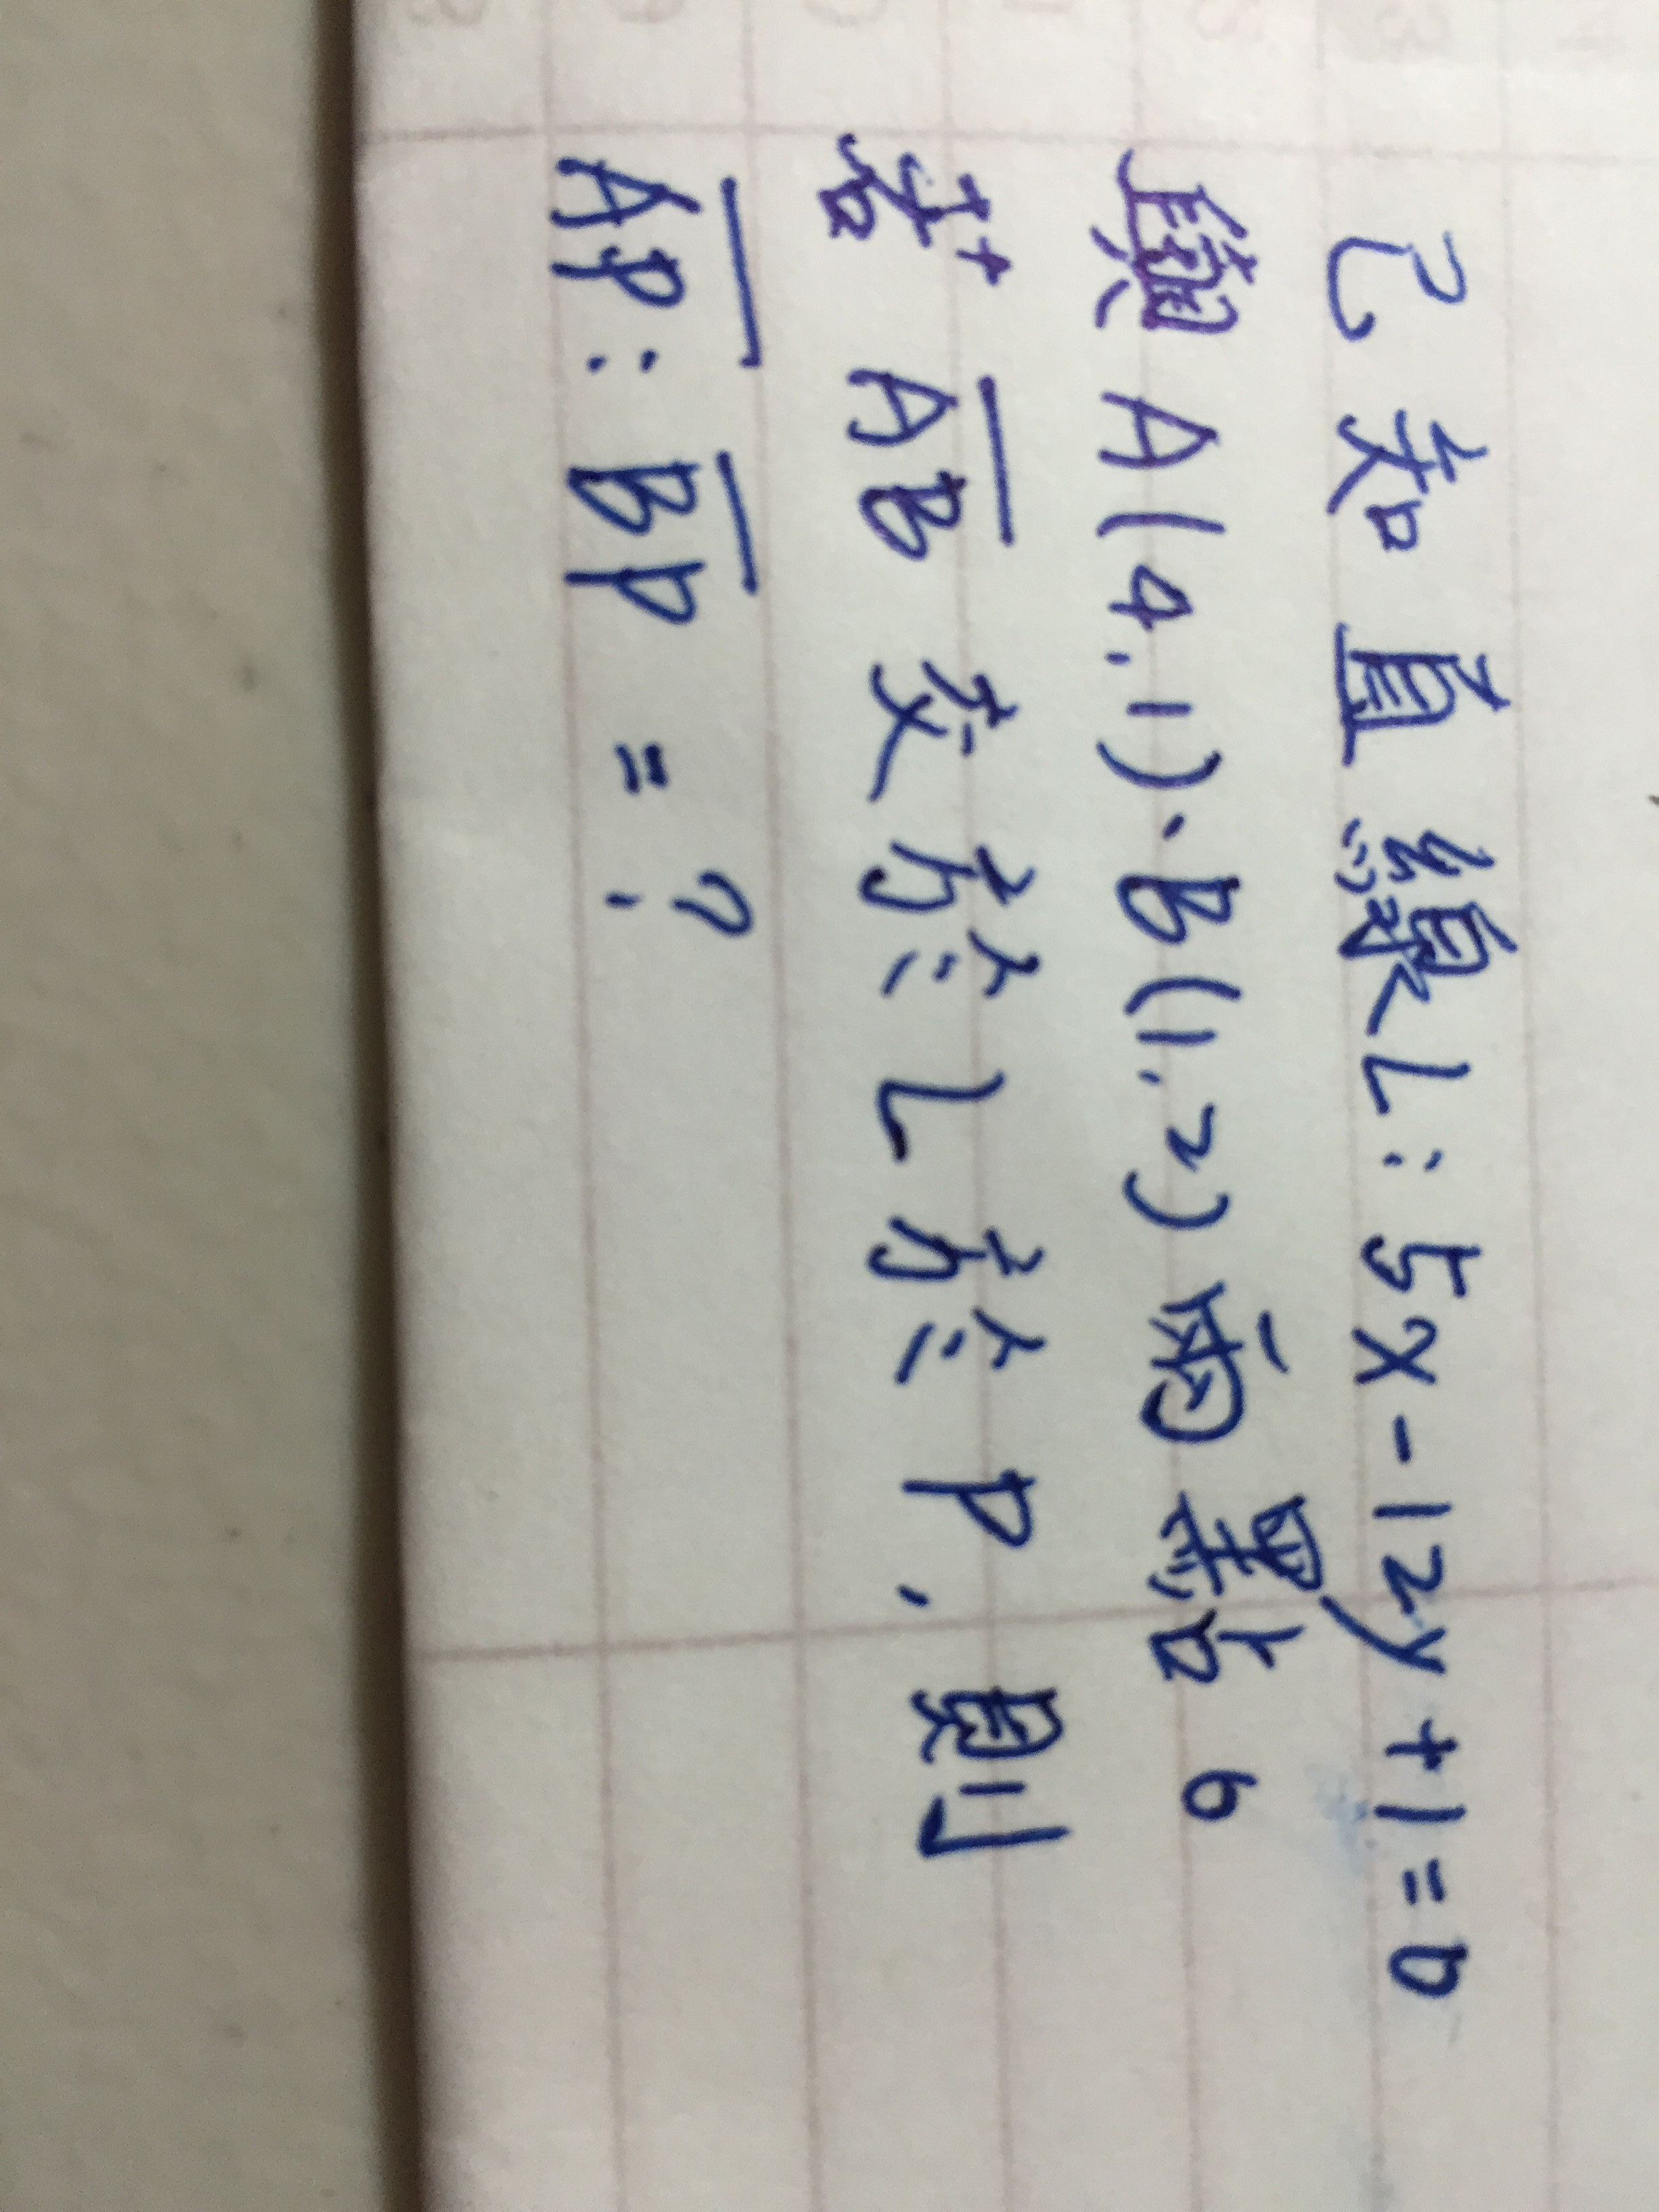 已知直線L:5x-12y+1=0
與A(4,1)、B(1,2)兩點。
若AB交於L於P,則
AP:BP=?